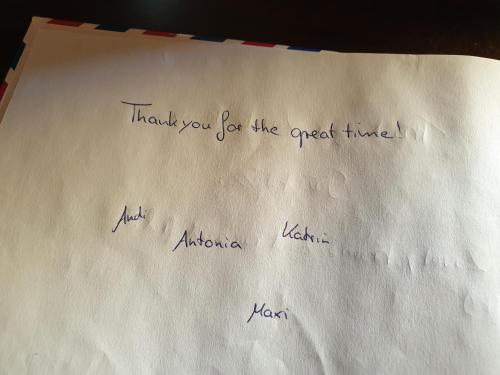 Thank you for the great time!
Andi
Antonia
Katrin
Maxi